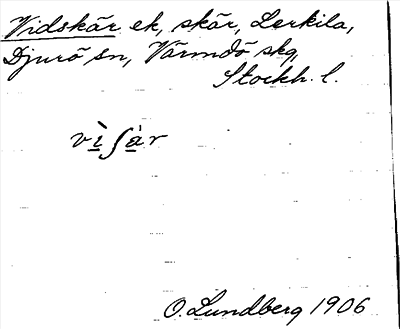 Vidskär ek, skär, Lerkila,
Djurö sn, Värmdö skg,
Stockh. l.
vìʃàr
O. Lundberg 1906